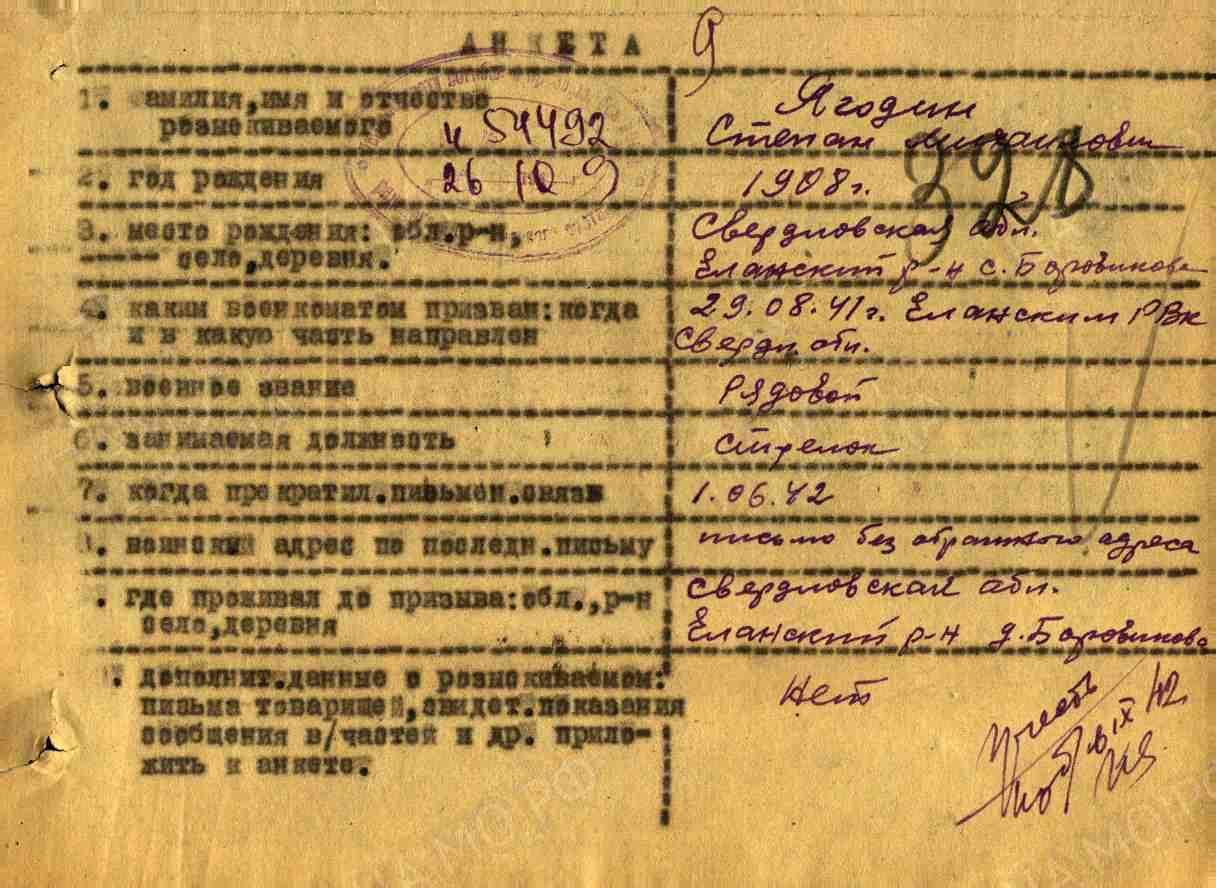 АНКЕТА
1. фамилия, имя и отчество
розыскиваемого
Ягодин
Степан Михайлович
и 54492
26 10 9
2. год рождения
1908 г.
328
3. место рождения: обл.р-н,
село, деревня.
Свердловская обл.
Еланский р-н с. Боровикова
4. каким военкоматом призван: когда
и в какую часть направлен
29.08.41 г. Еланским РВК
Сверд. обл.
5. военное звание
Рядовой
6. занимаемая должность
стрелок
7. когда прекратил.письмен.связь
1.06.42
8. воинский адрес по последн.письму
письмо без обратного адреса
. где проживал до призыва: обл., р-н
село, деревня
Свердловская обл.
Еланский р-н д. Боровикова
. дополнит.данные о розыскиваемом:
письма товарищей, свидет.показания
сообщения в/частей и др. прило-
жить к анкете.
Нет
IX 42